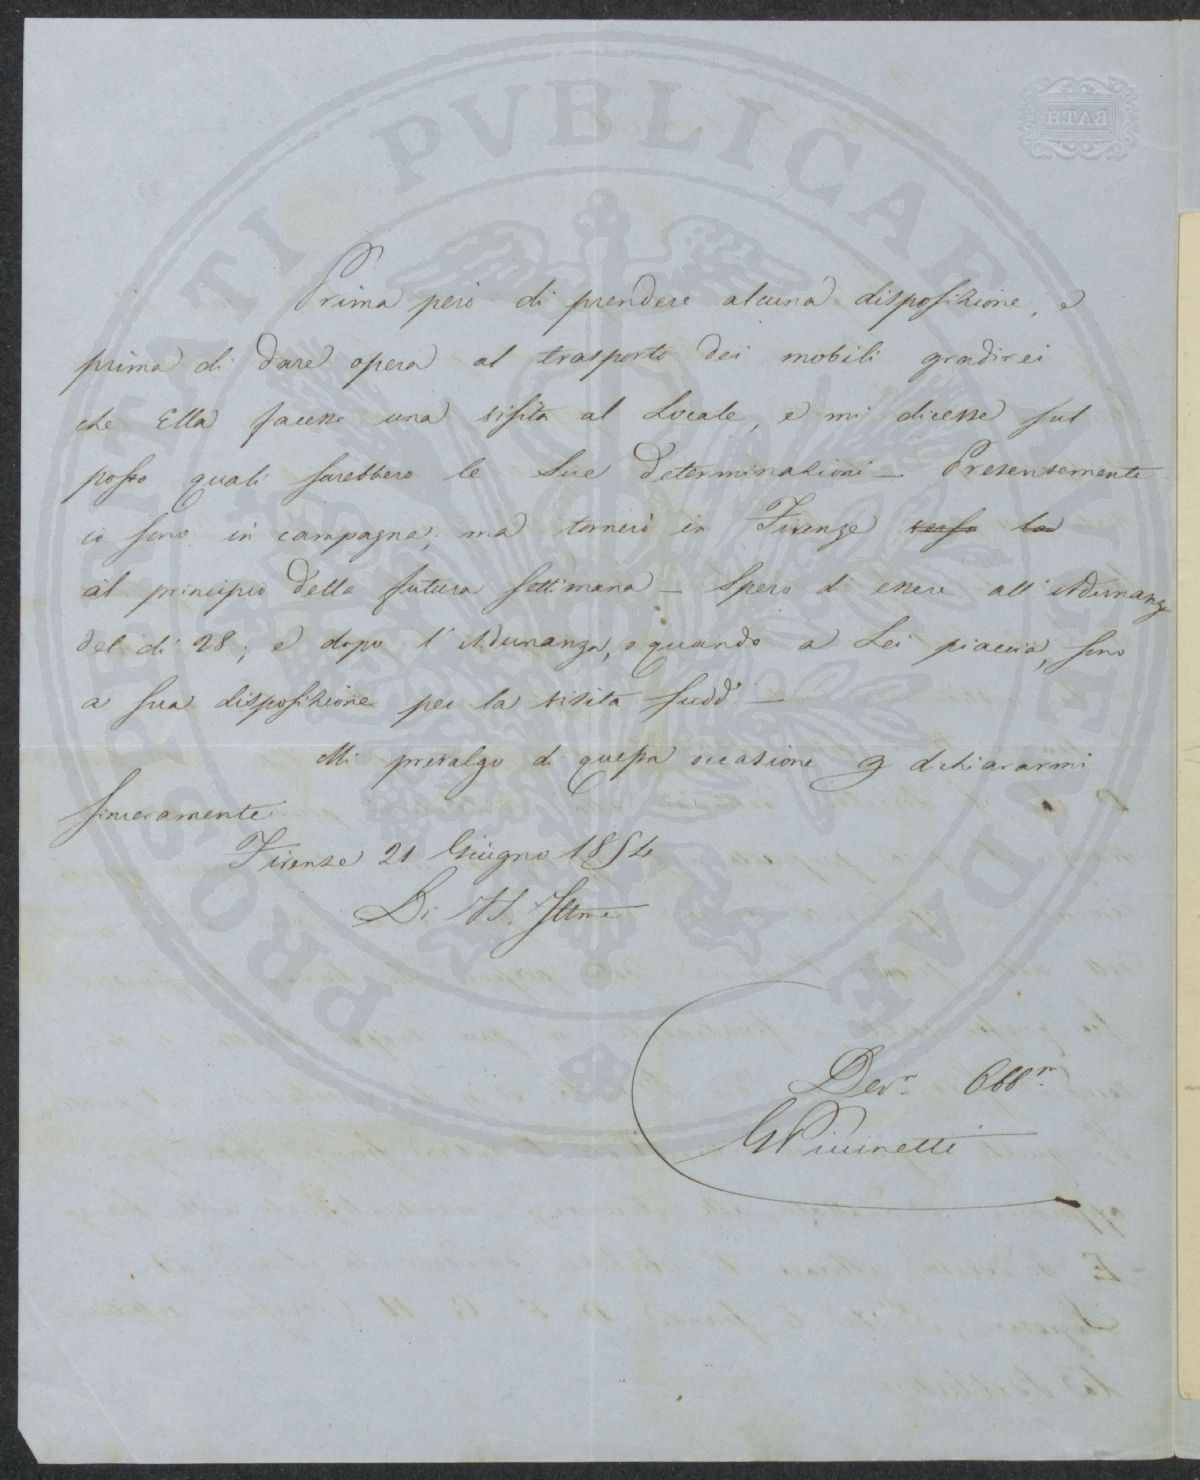 PROSPERITATI PVBLICAE AVGENDAE
BATH
Prima però di prendere alcuna disposizione, e
prima di dare opera al trasporto dei mobili gradirei
che Ella facesse una visita al Locale, e mi dicesse sul
posto quali sarebbero le Sue determinazioni — Presentemente
io sono in campagna, ma tornerò in Firenze verso la
al principio della futura settimana — Spero d'essere all'Adunanza
del dì 28; e dopo l'Adunanza, o quando a Lei piaccia, sono
a sua disposizione per la visita sudd.ª —
Mi prevalgo di questa occasione p dichiararmi
sinceramente
Firenze 21 Giugno 1854
Di V.S. Illma
Dev.º Obb.º